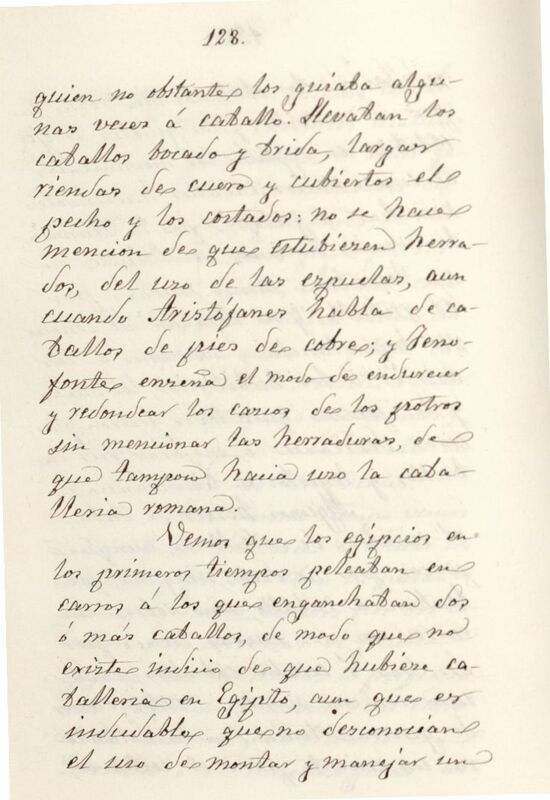 128.
quien no obstante los guiaba algu-
nas veces á caballo. Llevaban los
caballos bocado y brida, largas
riendas de cuero y cubiertos el
pecho y los costados: no se hace
mencion de que estubiesen herra-
dos, del uso de las espuelas, aun
cuando Aristófanes habla de ca-
ballos de pies de cobre; y Jeno-
fonte enseña el modo de endurecer
y redondear los cascos de los potros
sin mencionar las herraduras, de
que tampoco hacia uso la caba-
lleria romana.
Vemos que los egipcios en
los primeros tiempos peleaban en
carros á los que enganchaban dos
ó más caballos, de modo que no
existe indicio de que hubiese ca-
balleria en Egipto, aun que es
indudable que no desconocian
el uso de montar y manejar un